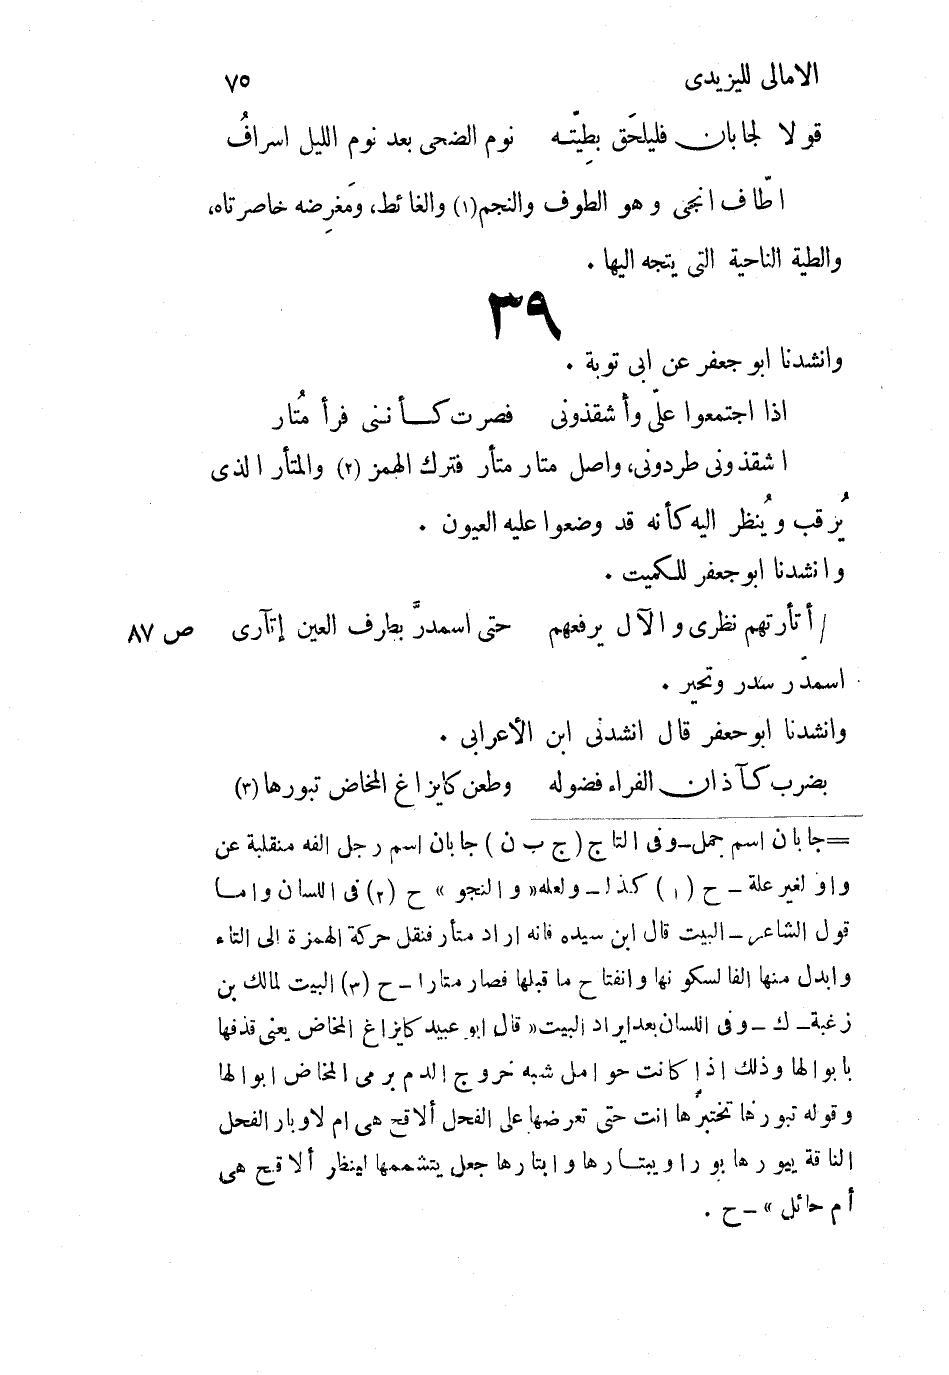 الامالى لليزيدى ٧٥
قولا لجابان فليلحَق بطِيّتـه نوم الضحى بعد نوم الليل اسرافُ
اطّاف انجى وهو الطوف والنجم(١) والغائط، ومَغرِضه خاصرتاه،
والطية الناحية التى يتجه اليها .
٣٩
وانشدنا ابو جعفر عن ابى توبة .
اذا اجتمعوا علىّ وأشقذونى فصرت كـأننى فرأ مُتار
اشقذونى طردونى، واصل متار متأر فترك الهمز (٢) والمتأر الذى
يُرقب ويُنظر اليه كأنه قد وضعوا عليه العيون .
وانشدنا ابوجعفر للكميت .
/ أتأرتهم نظرى والآل يرفعهم حتى اسمدرَّ بطرف العين إتآرى ص ٨٧
اسمدّر سدر وتحير .
وانشدنا ابوحعفر قال انشدنى ابن الأعرابى .
بضرب كـآذان الفراء فضوله وطعن كايزاغ المخاض تبورها (٣)
=جابان اسم جمل-وفى التاج (ج ب ن) جابان اسم رجل الفه منقلبة عن
واو لغير علة - ح (١) كذا - ولعله« والنجو » ح (٢) فى اللسان وامـا
قول الشاعر - البيت قال ابن سيده فانه اراد متأر فنقل حركة الهمزة الى التاء
وابدل منها الفا لسكونها وانفتاح ما قبلها فصار متارا - ح (٣) البيت لمالك بن
زغبة - ك - وفى اللسان بعد ايراد البيت« قال ابو عبيد كايزاغ المخاض يعنى قذفها
بابوالها وذلك اذا كانت حوامل شبه خروج الدم برمى المخاض ابوالها
وقوله تبورها تختبرُها انت حتى تعرضها على الفحل ألاقح هى ام لا وبار الفحل
الناقة يبورها بورا ويبتـارها وابتارها جعل يتشممها لينظر ألاقح هى
أم حائل » - ح .